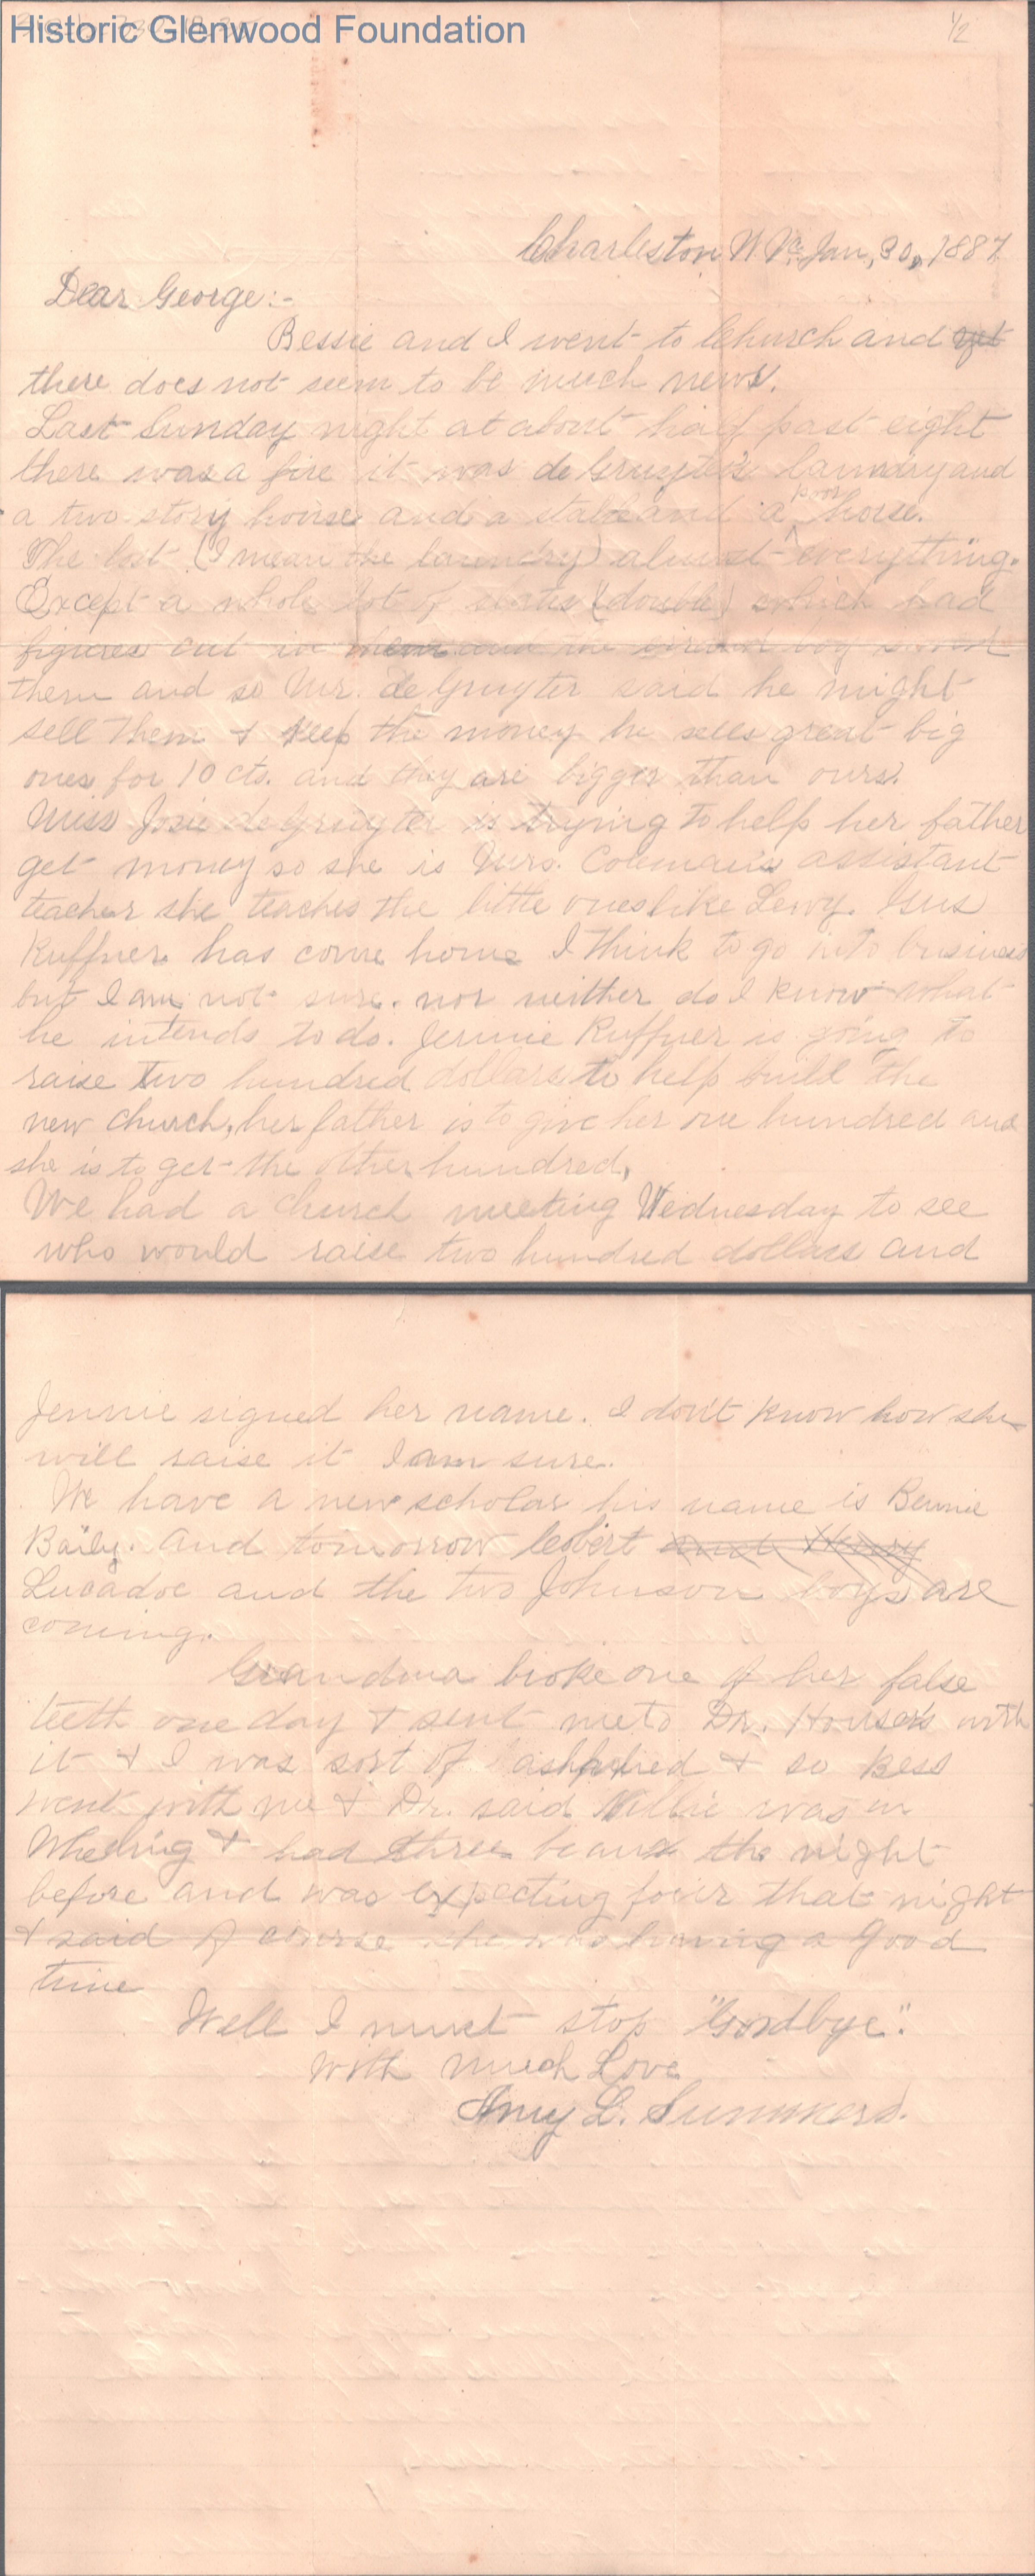 Historic Glenwood Foundation
1/2
Charleston W. Va. Jan, 30, 1887.
Dear George:-
Bessie and I went to Church and yet
there does not seem to be much news.
Last Sunday night at about half past eight
there was a fire it was de Gruyter's laundry and
a two story house and a stable and a poor horse.
The lost (I mean the laundry) almost everything.
Except a whole lot of slates (double) which had
figures cut in them and the errand boy saved
them and so Mr. de Gruyter said he might
sell them & keep the money he sells great big
ones for 10 cts. and they are bigger than ours.
Miss Josie de Gruyter is trying to help her father
get money so she is Mrs. Coleman's assistant
teacher she teaches the little ones like Lewy. Gus
Ruffner has come home I think to go into business
but I am not sure. nor neither do I know what
he intends to do. Jennie Ruffner is going to
raise two hundred dollars to help build the
new church, her father is to give her one hundred and
she is to get the other hundred,
We had a church meeting Wednesday to see
who would raise two hundred dollars and
Jennie signed her name. I don't know how she
will raise it I am sure.
We have a new scholar his name is Bennie
Baily. And tomorrow and Henry
Lucadoe and the two Johnson boys are
coming.
Grandma broke one of her false
teeth one day & sent me to Dr. Houser's with
it & I was sort of ashamed & so Bess
went with me & Dr. said Nillie was in
Wheeling & had three beaux the night
before and was expecting four that night
& said of course she was having a good
time
Well I must stop "Goodbye".
With much Love
Amy L. Summers.